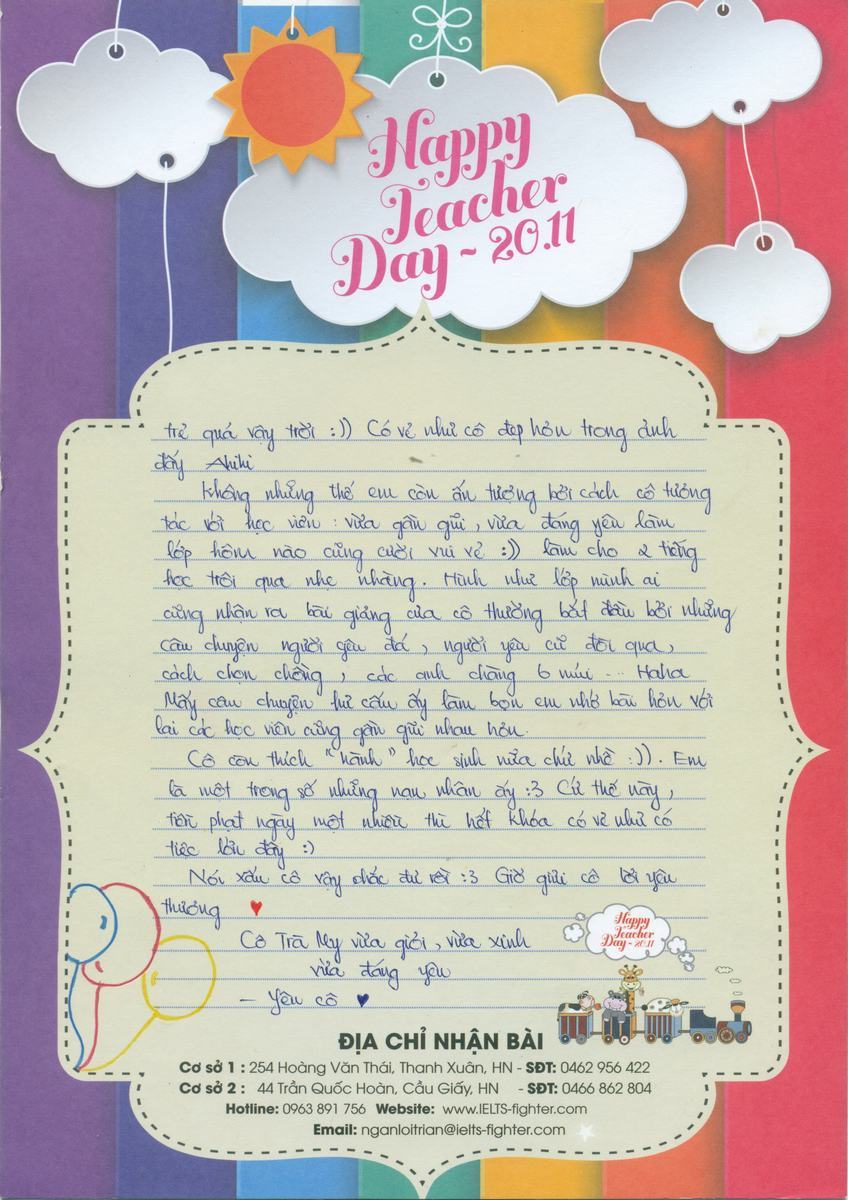 Happy
Teacher
Day ~ 20.11
trẻ quá vậy trời :)) Có vẻ như cô đẹp hơn trong ảnh
đấy Ahihi
Không những thế em còn ấn tượng bởi cách cô tương
tác với học viên : vừa gần gũi, vừa đáng yêu làm
lớp hôm nào cũng cười vui vẻ :)) làm cho 2 tiếng
học trôi qua nhẹ nhàng. Hình như lớp mình ai
cũng nhận ra bài giảng của cô thường bắt đầu bởi những
câu chuyện người yêu đá, người yêu cũ đòi quà,
cách chọn chồng, các anh chàng 6 múi ... Haha
Mấy câu chuyện hư cấu ấy làm bọn em nhớ bài hơn với
lại các học viên cũng gần gũi nhau hơn.
Cô còn thích "hành" học sinh nữa chứ nhề :)). Em
là một trong số những nạn nhân ấy :3 Cứ thế này,
tiền phạt ngày một nhiều thì hết khóa có vẻ như có
tiệc lớn đây :)
Nói xấu cô vậy chắc đủ rồi :3 Giờ gửi cô lời yêu
thương ♥
Cô Trà My vừa giỏi, vừa xinh
vừa đáng yêu
– Yêu cô ♥
Happy
Teacher
Day ~ 20.11
ĐỊA CHỈ NHẬN BÀI
Cơ sở 1 : 254 Hoàng Văn Thái, Thanh Xuân, HN - SĐT: 0462 956 422
Cơ sở 2 : 44 Trần Quốc Hoàn, Cầu Giấy, HN - SĐT: 0466 862 804
Hotline: 0963 891 756 Website: www.IELTS-fighter.com
Email: nganloitrian@ielts-fighter.com